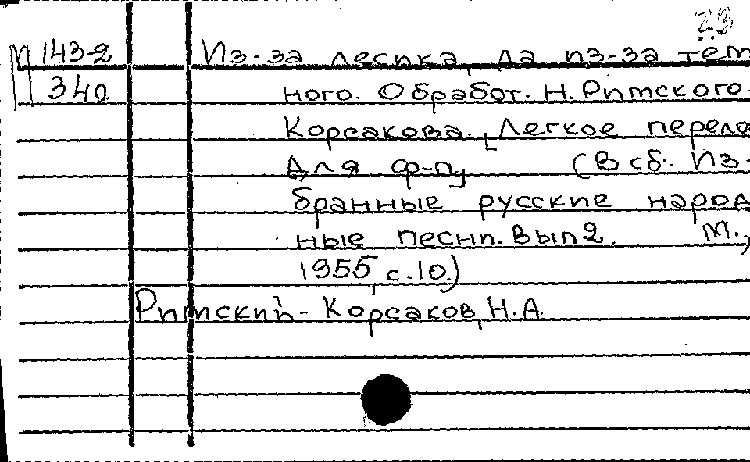 23
М 143-2 Из-за лесика, да из-за тём
340 ного. Обработ. Н. Римского-
Корсакова. [Легкое перелож.
для ф-п] (В сб: Из-
бранные русские народ
ные песни. Вып 2. М.,
1955, с. 10.)
Римский-Корсаков, Н.А.